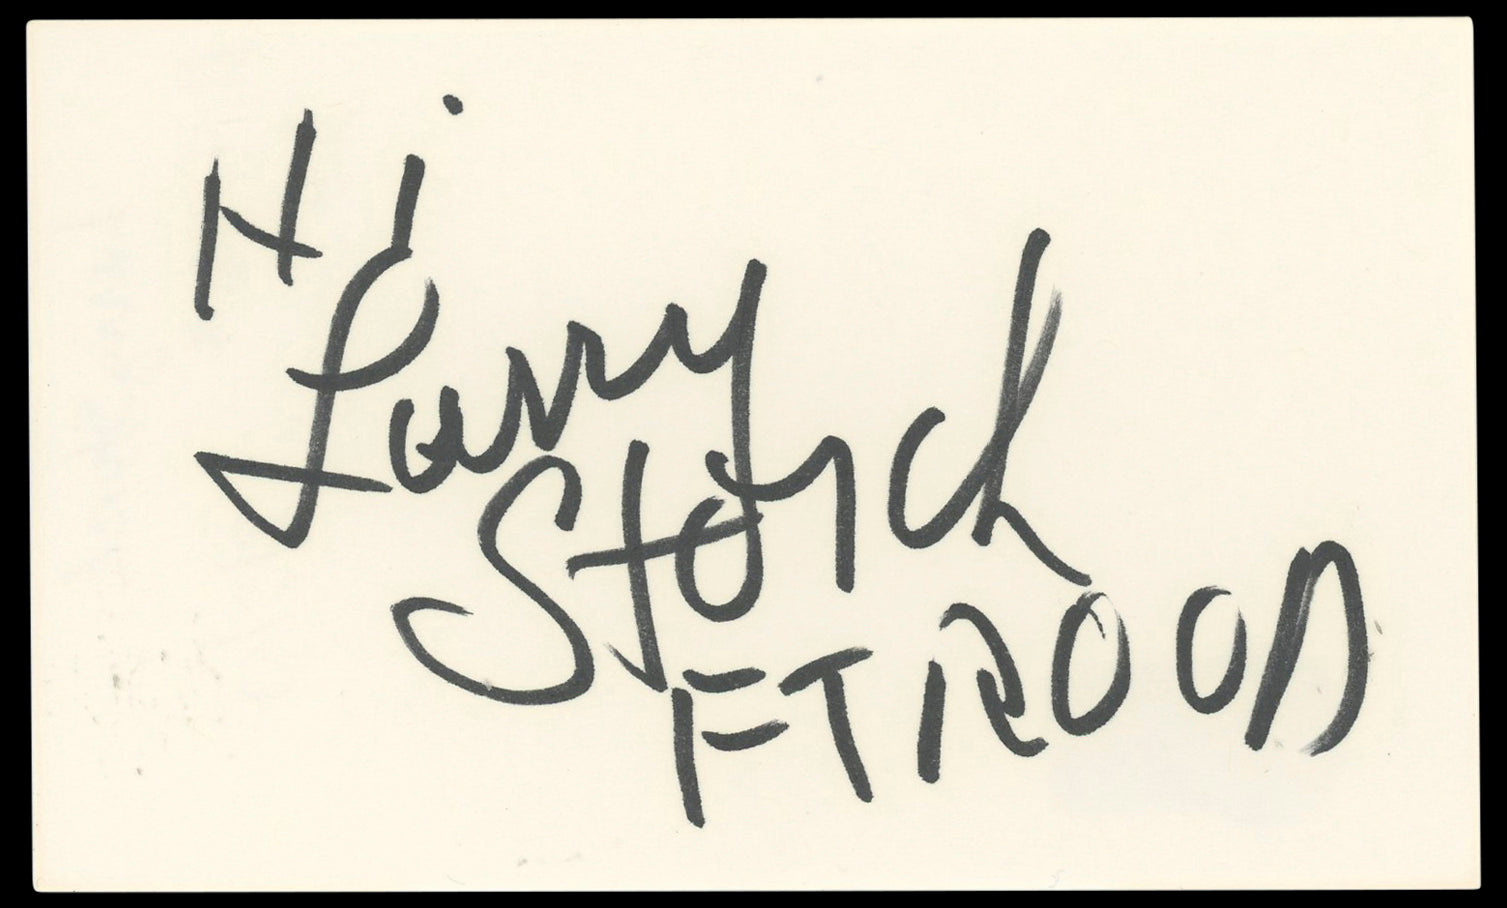 Hi
Larry
Storch
FTROOD